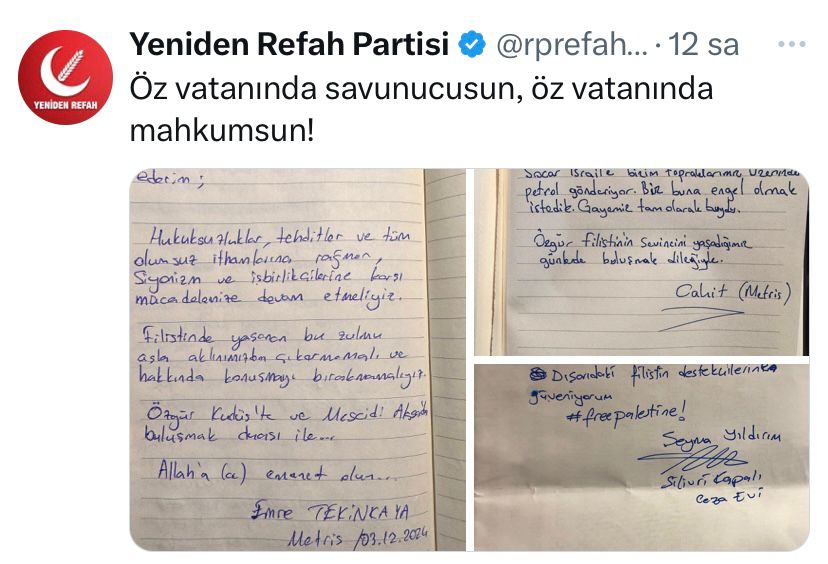 Yeniden Refah Partisi @rprefah... · 12 sa
Öz vatanında savunucusun, öz vatanında
mahkumsun!
YENİDEN REFAH
ederim;
Hukuksuzluklar, tehditler ve tüm
olumsuz ithamlarına rağmen,
Siyonizm ve işbirlikçilerine karşı
mücadelemize devam etmeliyiz.
Filistinde yaşanan bu zulmü
asla aklımızdan çıkarmamalı ve
hakkında konuşmayı bırakmamalıyız.
Özgür Kudüs'te ve Mescidi Aksa'da
buluşmak duası ile...
Allah'a (cc) emanet olun...
Emre TEKİNKAYA
Metris /03.12.2024
Socar İsraile bizim topraklarımız üzerinden
petrol gönderiyor. Biz buna engel olmak
istedik. Gayemiz tam olarak buydu.
Özgür filistinin sevincini yaşadığımız
günlerde buluşmak dileğiyle.
Cahit (Metris)
Dışarıdaki filistin destekçilerine
güveniyorum
#freepalestine!
Şeyma Yıldırım
Silivri Kapalı
Ceza Evi